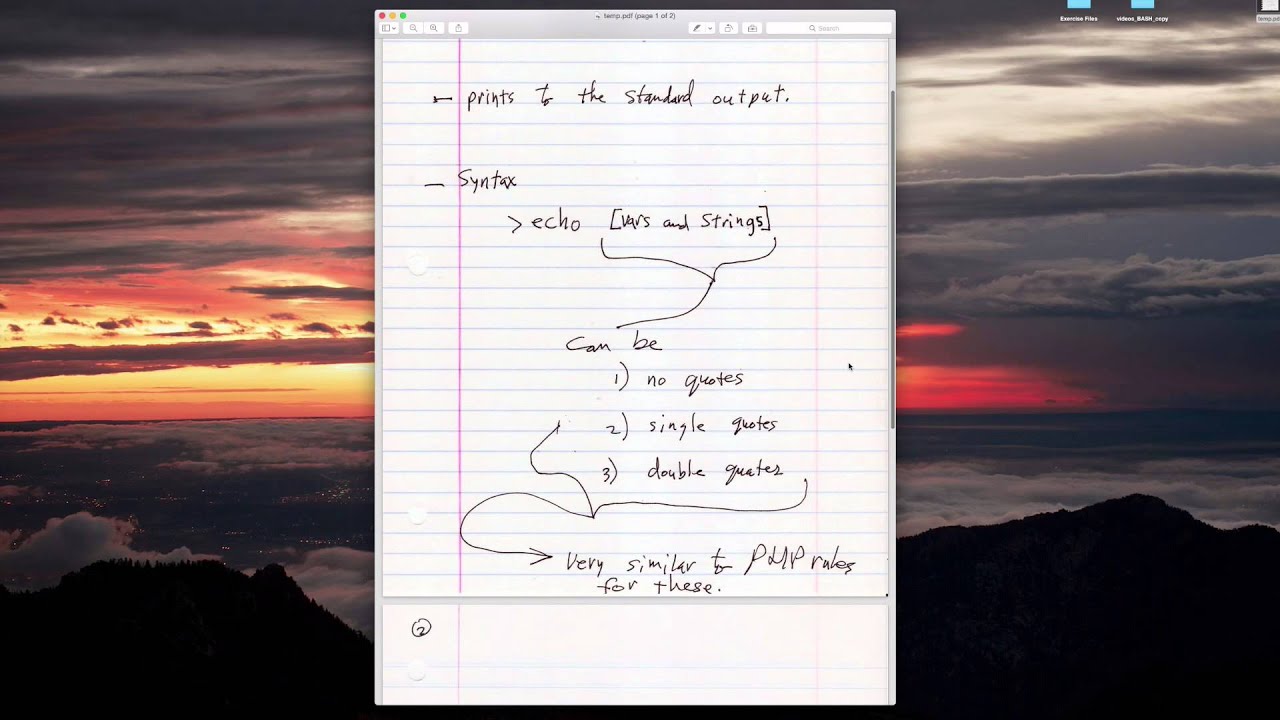 Exercise Files
videos_BASH_copy
temp.pdf
temp.pdf (page 1 of 2)
Search
- prints to the standard output.
- Syntax
> echo [vars and strings]
Can be
1) no quotes
2) single quotes
3) double quates
Very similar to PHP rules
for these.
2